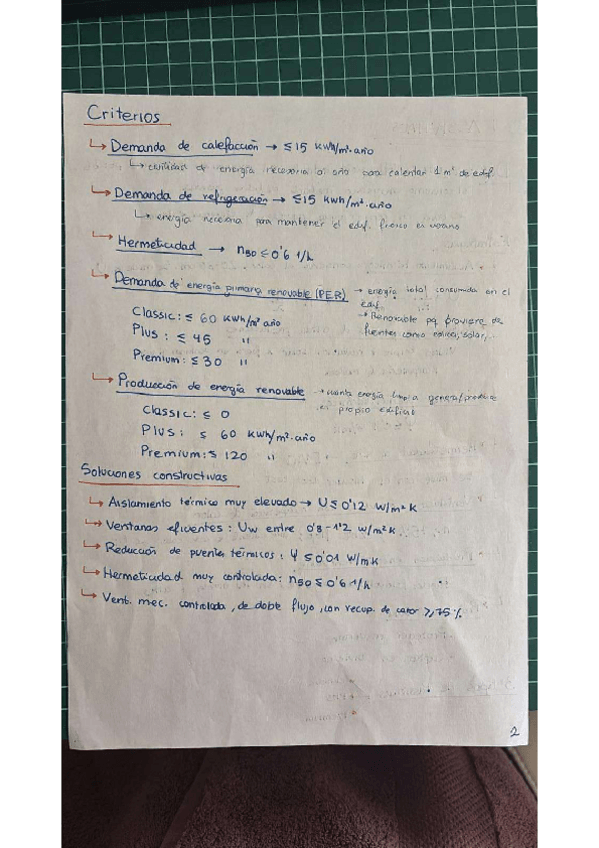 Criterios
↳ Demanda de calefacción → ≤ 15 kWh/m²·año
↳ cantidad de energía necesaria al año para calentar 1 m² de edif.
↳ Demanda de refrigeración → ≤ 15 kWh/m²·año
↳ energía necesaria para mantener el edif. fresco en verano
↳ Hermeticidad → n50 ≤ 0'6 1/h
↳ Demanda de energía primaria renovable (PER) → energía total consumida en el
edif.
→ Renovable pq proviene de
fuentes como eólica, solar,...
Classic: ≤ 60 kWh/m² año
Plus: ≤ 45 "
Premium: ≤ 30 "
↳ Producción de energía renovable → cuanta energía limpia genera/produce
el propio edificio
Classic: ≤ 0
Plus: ≤ 60 kWh/m²·año
Premium: ≤ 120 "
Soluciones constructivas
↳ Aislamiento térmico muy elevado → U ≤ 0'12 W/m² K
↳ Ventanas eficientes: Uw entre 0'8 - 1'2 W/m² K
↳ Reducción de puentes térmicos: Ψ ≤ 0'01 W/mK
↳ Hermeticidad muy controlada: n50 ≤ 0'6 1/h
↳ Vent. mec. controlada, de doble flujo, con recup. de calor ≥ 75%
2